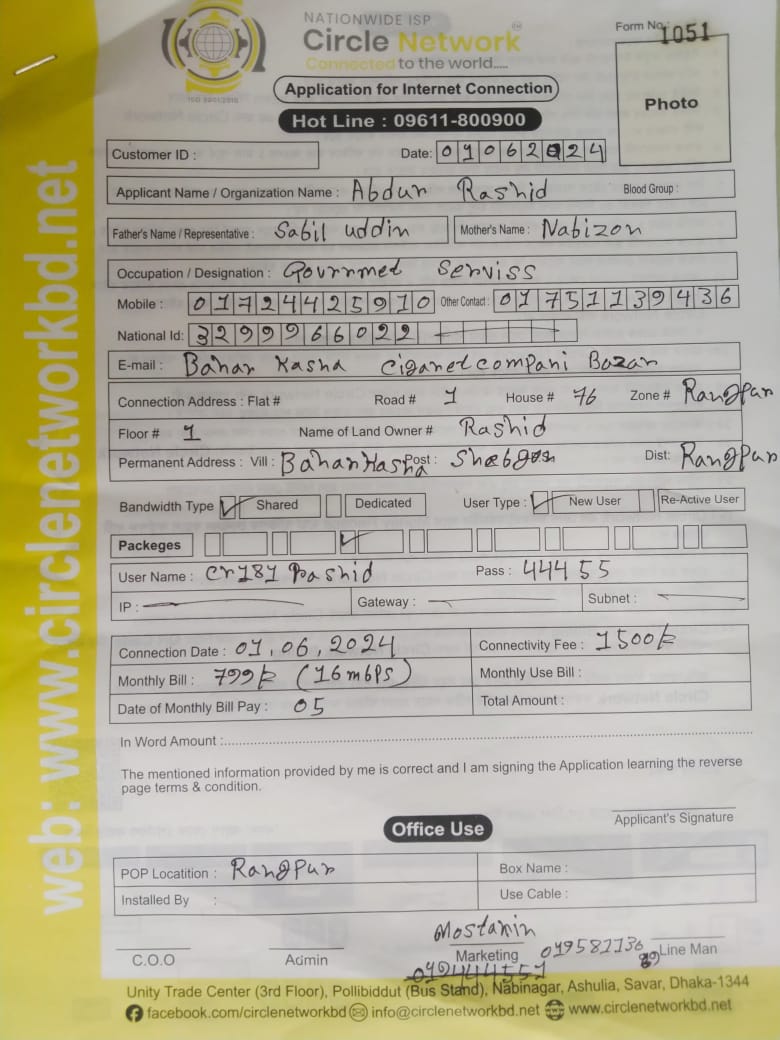 NATIONWIDE ISP
Circle Network
Connected to the world.....
ISO 9001:2015
Form No.: 1051
Photo
Application for Internet Connection
Hot Line : 09611-800900
Customer ID :
Date: 01062024
Applicant Name / Organization Name : Abdur Rashid Blood Group :
Father's Name / Representative : Sabil uddin Mother's Name : Nabizon
Occupation / Designation : Govrnmet Serviss
Mobile : 01724425910 Other Contact : 01751139436
National Id: 3299966022
E-mail : Bahar Kasna Cigaret compani Bazar
Connection Address : Flat # Road # 1 House # 76 Zone # Rangpur
Floor # 1 Name of Land Owner # Rashid
Permanent Address : Vill : Bahar Kasna Post : Dist: Rangpur
Bandwidth Type ✓ Shared Dedicated User Type : ✓ New User Re-Active User
Packeges ✓
User Name : cr181 Rashid Pass : 44455
IP : Gateway : Subnet :
Connection Date : 01.06.2024 Connectivity Fee : 1500/=
Monthly Bill : 799/= (16 mbps) Monthly Use Bill :
Date of Monthly Bill Pay : 05 Total Amount :
In Word Amount :
The mentioned information provided by me is correct and I am signing the Application learning the reverse
page terms & condition.
Applicant's Signature
Office Use
POP Locatition : Rangpur Box Name :
Installed By : Use Cable :
Mostanin
C.O.O Admin Marketing Line Man
Unity Trade Center (3rd Floor), Pollibiddut (Bus Stand), Nabinagar, Ashulia, Savar, Dhaka-1344
facebook.com/circlenetworkbd info@circlenetworkbd.net www.circlenetworkbd.net
web: www.circlenetworkbd.net